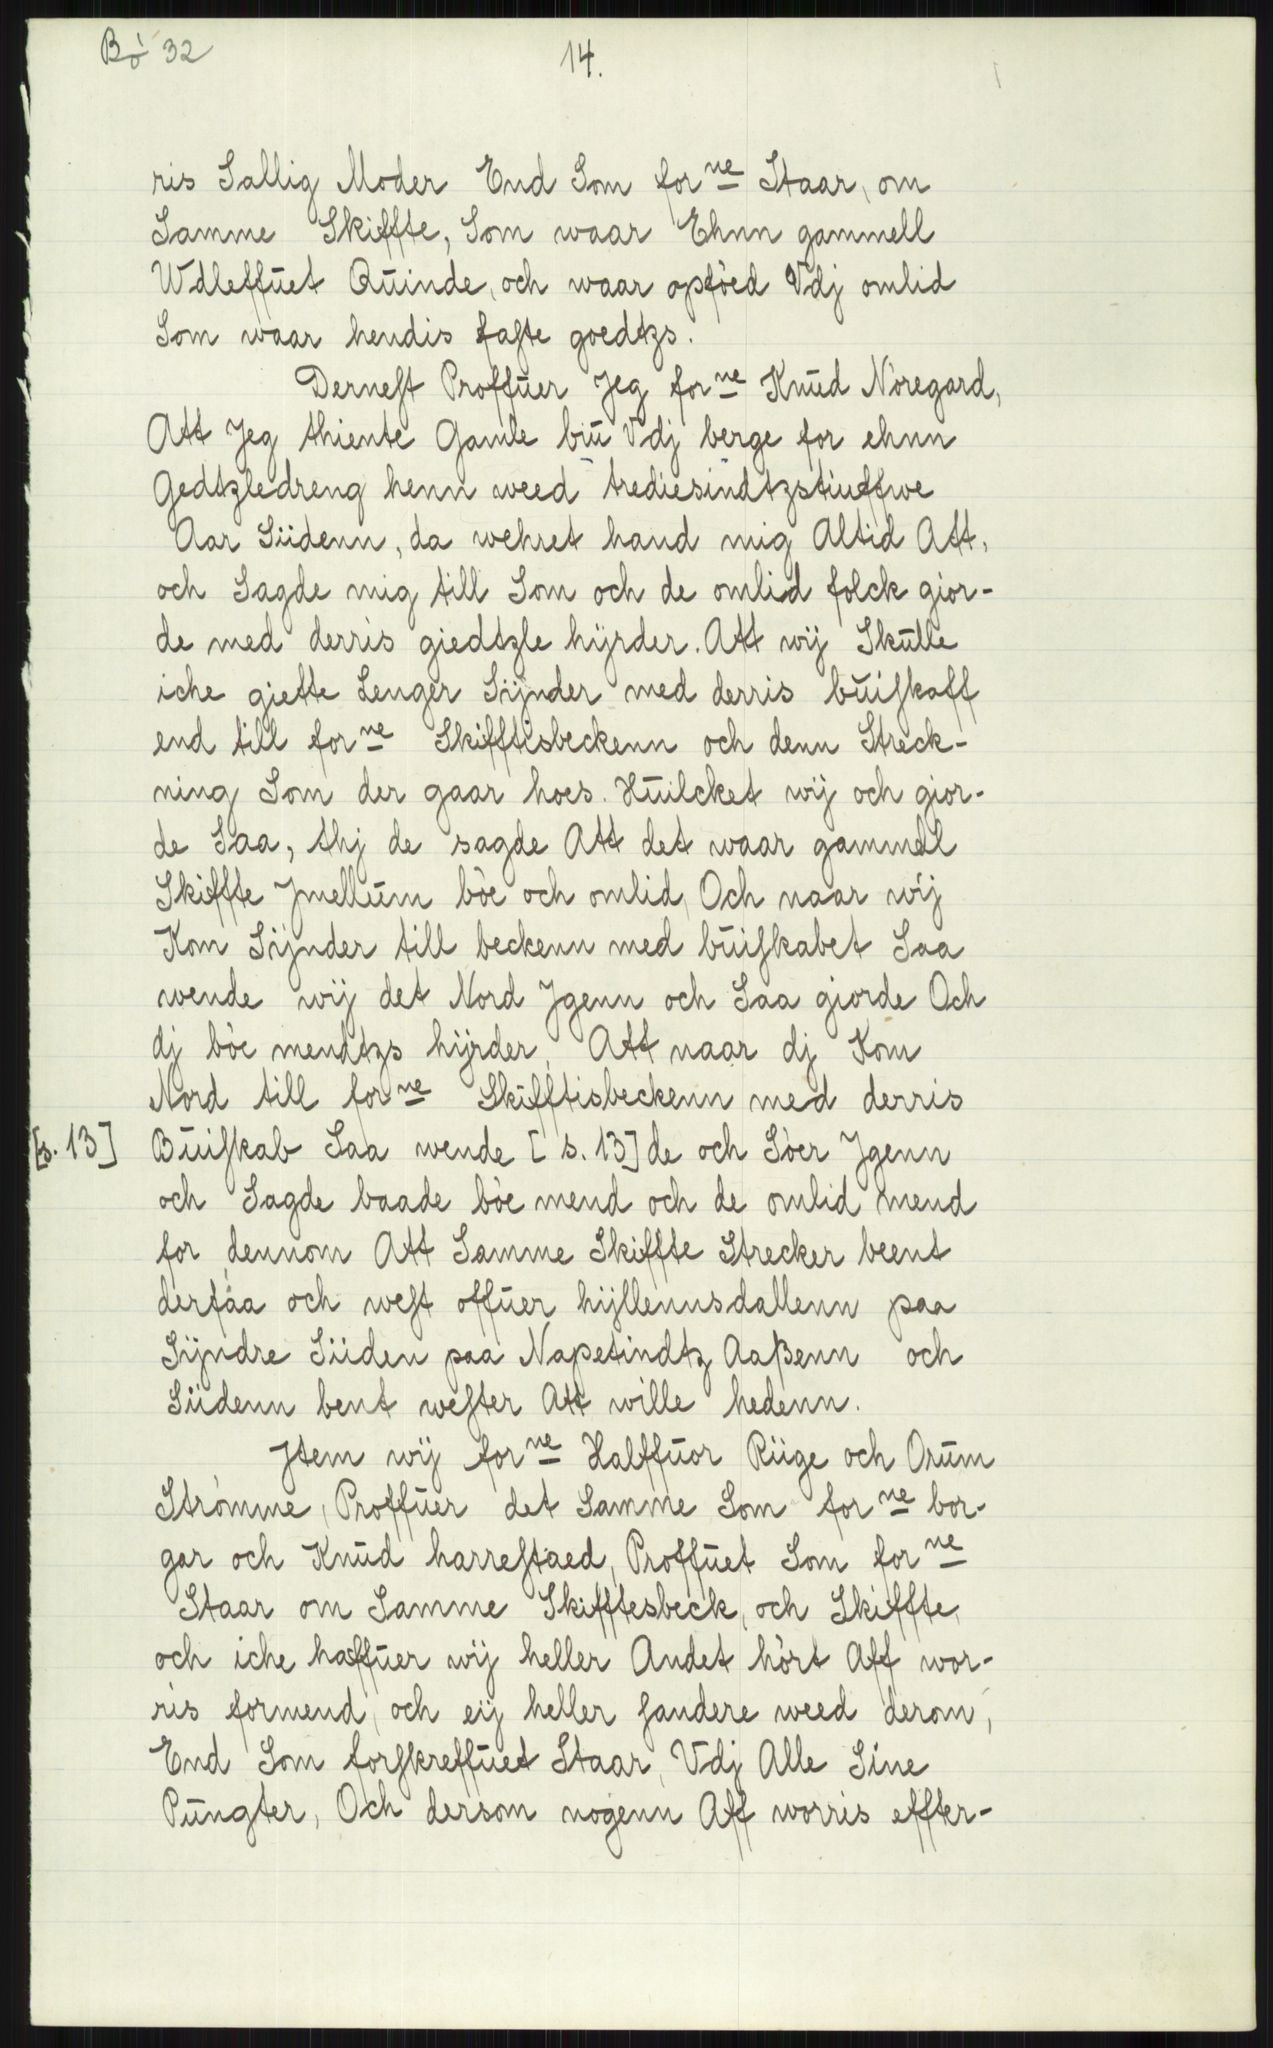 Bò 32
14.
ris Sallig Moder End Som for ne Staar, om
Samme Skiffte, Som waar Ehnn gammell
Wdleffuet Quinde, och waar opfòed Vdj omlid
Som waar hendis faste goedtzs.
Dernest Proffuer Jeg for ne Knud Nòregard,
Att Jeg thiente Gamle biu Vdj berge for ehnn
Gedtzledreng henn weed trediesindtzstiuffwe
Aar Siidenn, da wehret hand mig Altid Att,
och Sagde mig till Som och de omlid folck gior-
de med derris giedtzle hÿrder. Att wÿ Skulle
iche giette Lenger Sÿnder med derris buiskaff
end till for ne Skifftisbeckenn och denn Streck-
ning Som der gaar hoes. Huilcket wÿ och gior-
de Saa, thj de sagde Att det waar gammell
Skiffte Jmellum bòe och omlid, Och naar wÿ
Kom Sÿnder till beckenn med buiskabet Saa
wende wÿ det Nord Jgenn och Saa giorde Och
dj bòe mendtzs hÿrder, Att naar dj Kom
Nord till for ne Skifftisbeckenn med derris
[s. 13] Buiskab Saa wende [s. 13] de och Sòer Jgenn
och Sagde baade bòe mend och de omlid mend
for dennom Att Samme Skiffte Strecker beent
derfáa och west offuer hÿllennsdallenn paa
Sÿndre Siiden paa Napetindtz Aaßenn och
Siidenn bent wester Att wille hedenn.
Jtem wÿ for ne Halffuor Riige och Orum
Stròmme, Proffuer det Samme Som for ne bor-
gar och Knud harrestaed, Proffuet Som for ne
Staar om Samme Skifftesbeck, och Skiffte,
och iche haffuer wÿ heller Andet hòrt Aff wor-
ris formend, och eÿ heller sandere weed derom,
End Som forskreffuet Staar, Vdj Alle Sine
Pungter, Och dersom nogenn Aff worris effter-